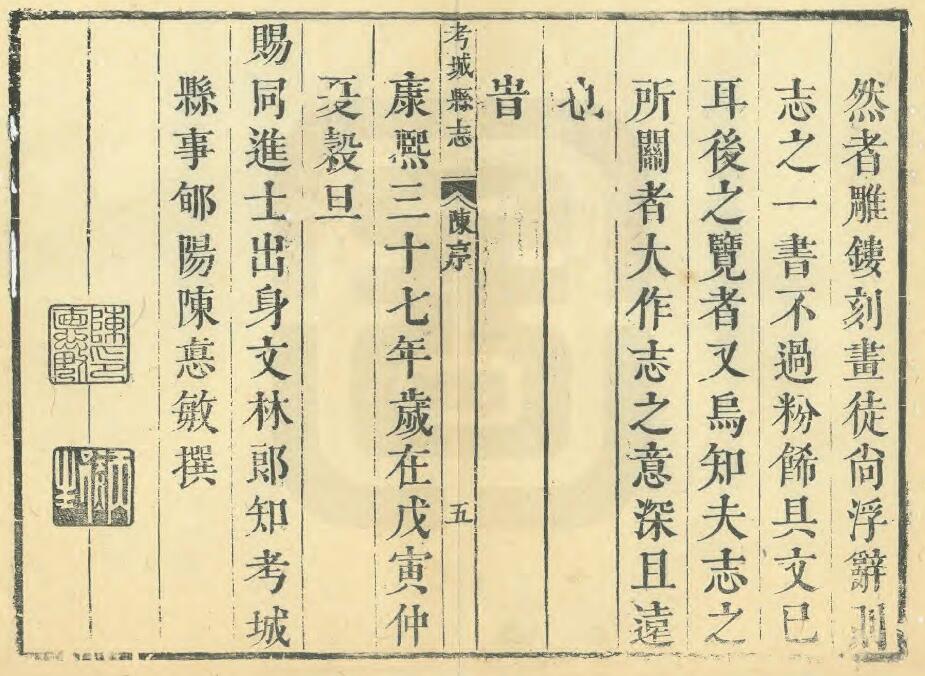 然者雕鏤刻畫徒尙浮辭則
志之一書不過粉餙具文已
耳後之覽者又烏知夫志之
所關者大作志之意深且遠
也
旹
考城縣志 陳序 五
康熈三十七年歲在戊寅仲
夏穀旦
賜同進士出身文林郎知考城
縣事郇陽陳悳敏撰